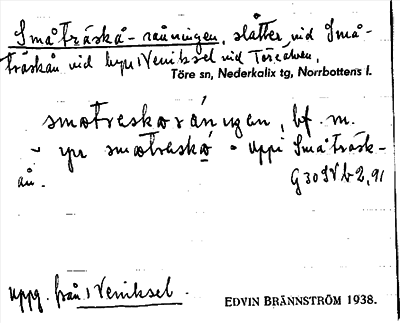 Småträskå-raningen, slåtter vid Små-
träskån vid byn Veniksel vid Töreälven,
Töre sn, Nederkalix tg, Norrbottens l.
smotreskoraningen, bf. m.
- yr smotreskå - uppi Småträsk-
ån.
G30 IV b 2, 91
uppg. från Veniksel.
EDVIN BRÄNNSTRÖM 1938.